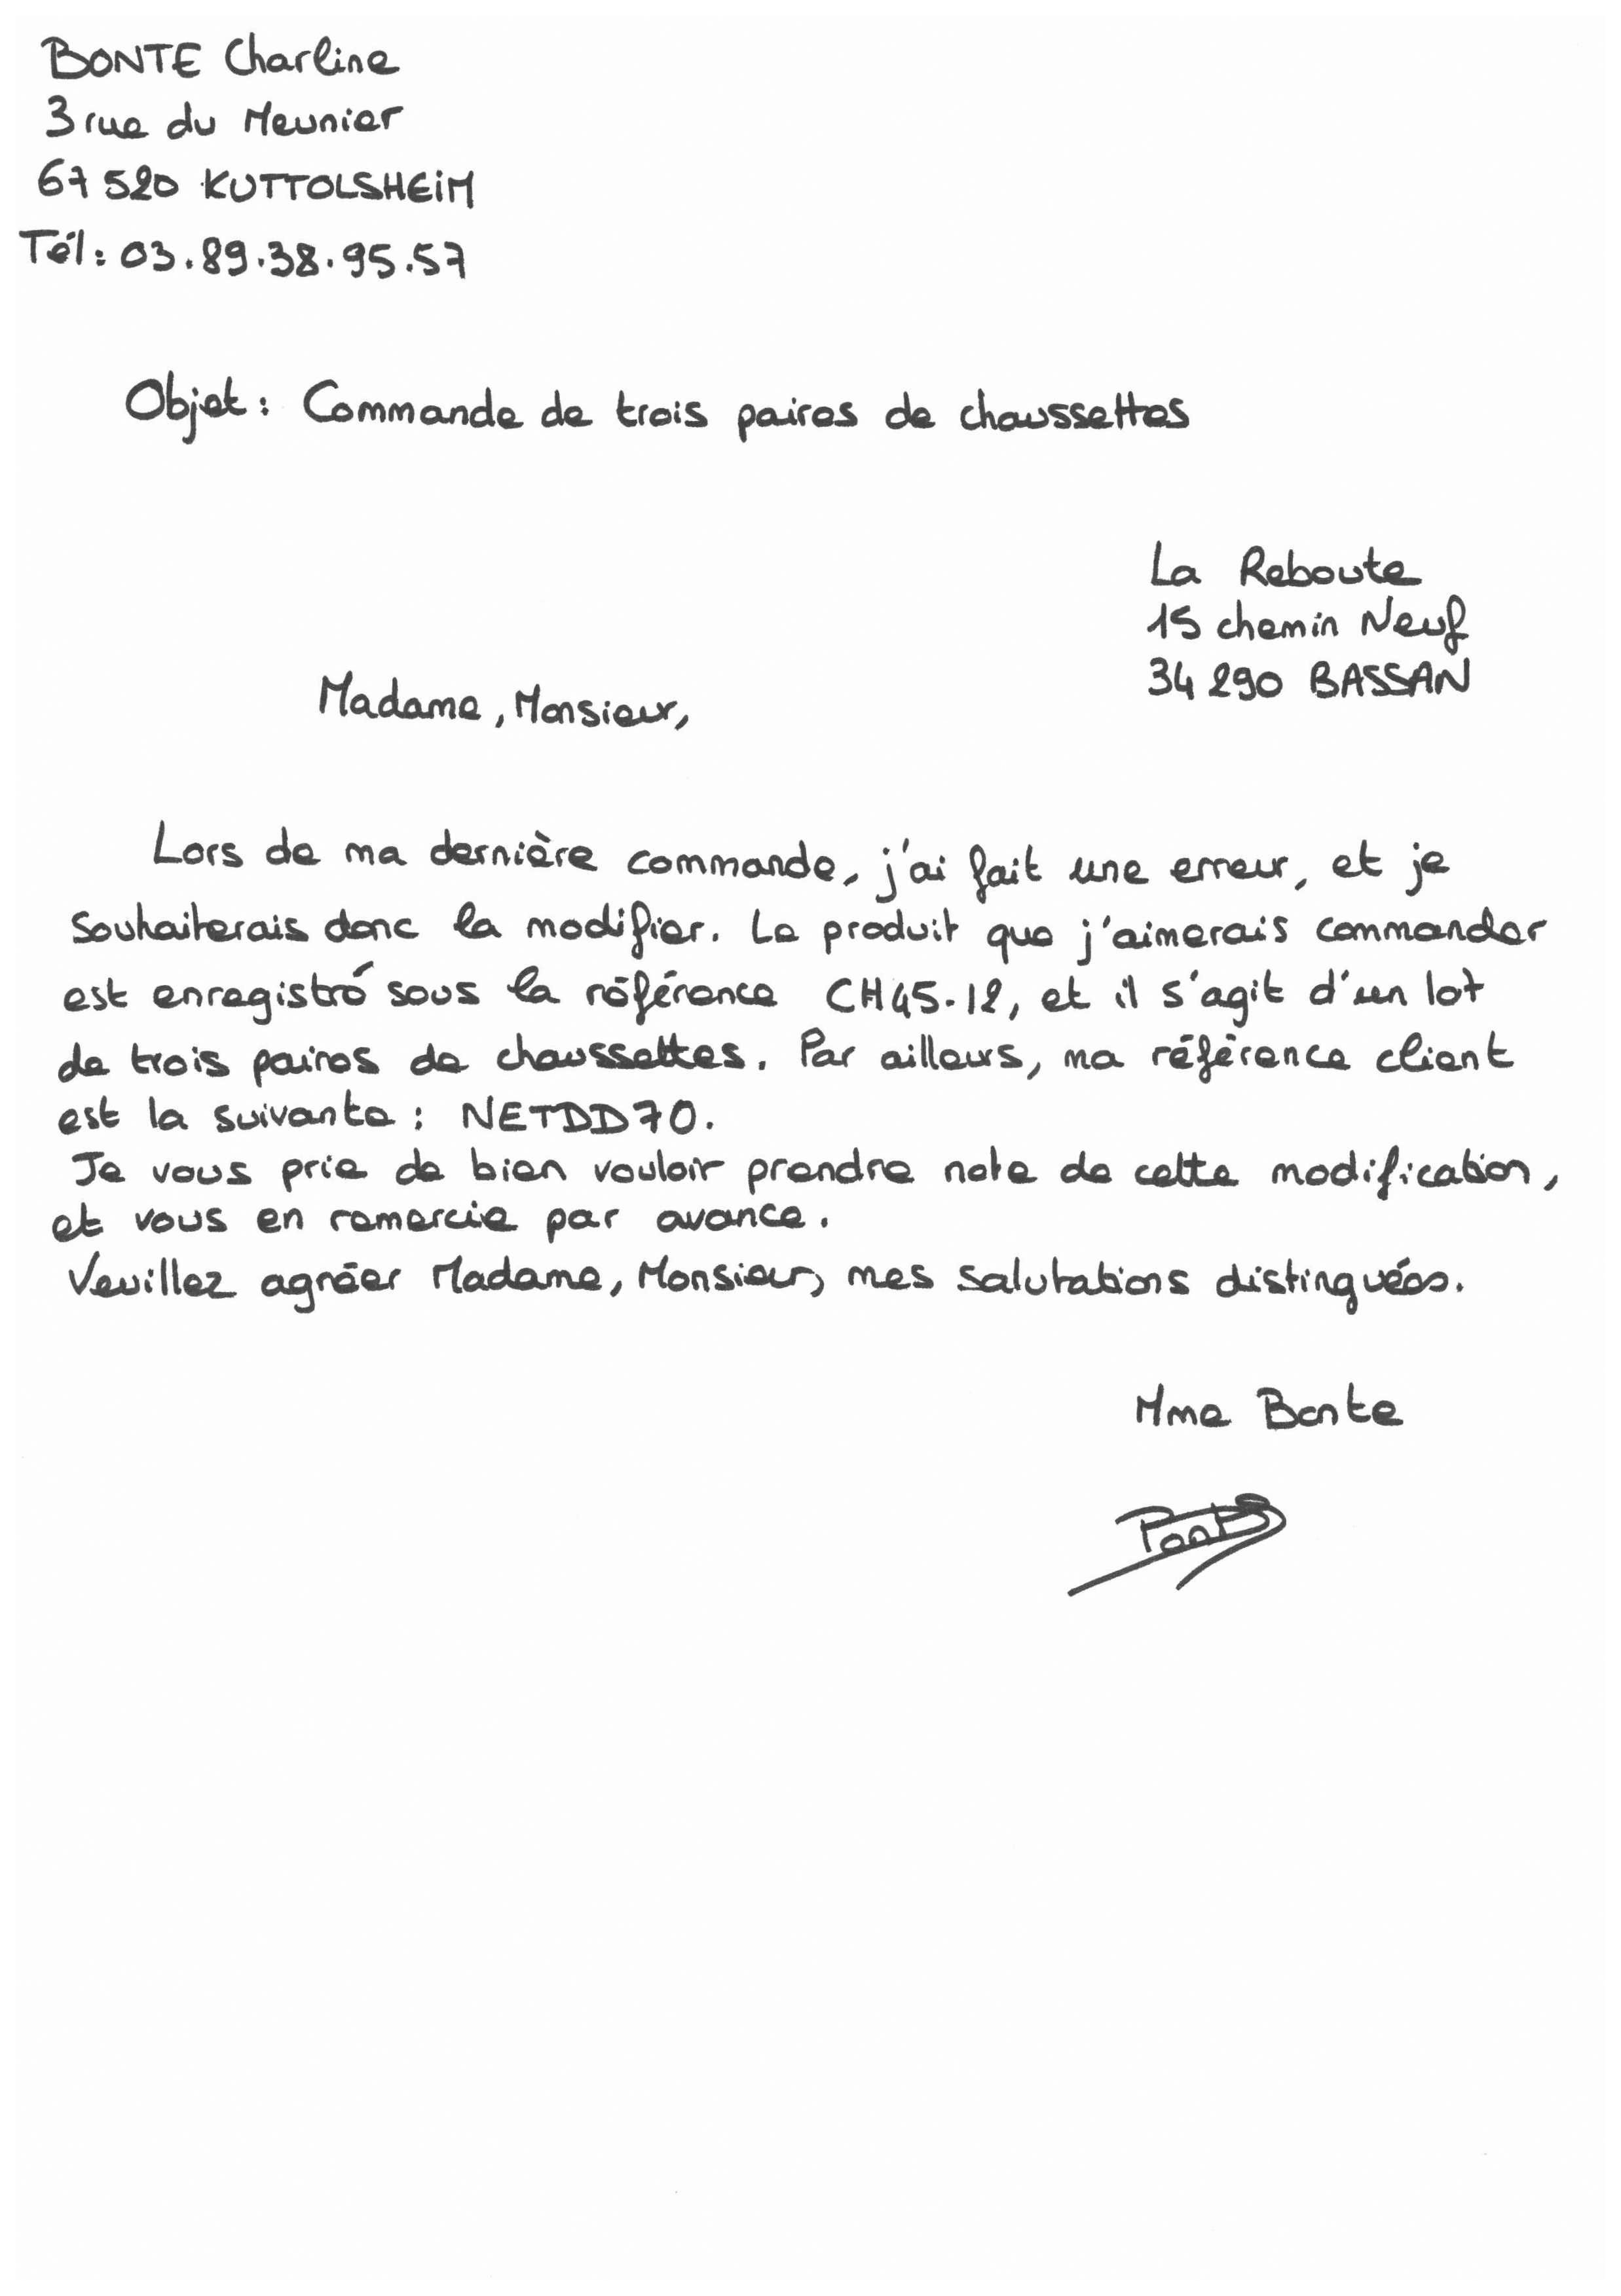 BONTE Charline
3 rue du Meunier
67 520 KUTTOLSHEIM
Tél : 03.89.38.95.57
Objet : Commande de trois paires de chaussettes
La Reboute
15 chemin Neuf
34 290 BASSAN
Madame, Monsieur,
Lors de ma dernière commande, j'ai fait une erreur, et je
souhaiterais donc la modifier. Le produit que j'aimerais commander
est enregistré sous la référence CH45.12, et il s'agit d'un lot
de trois paires de chaussettes. Par ailleurs, ma référence client
est la suivante : NETDD70.
Je vous prie de bien vouloir prendre note de cette modification,
et vous en remercie par avance.
Veuillez agréer Madame, Monsieur, mes salutations distinguées.
Mme Bonte